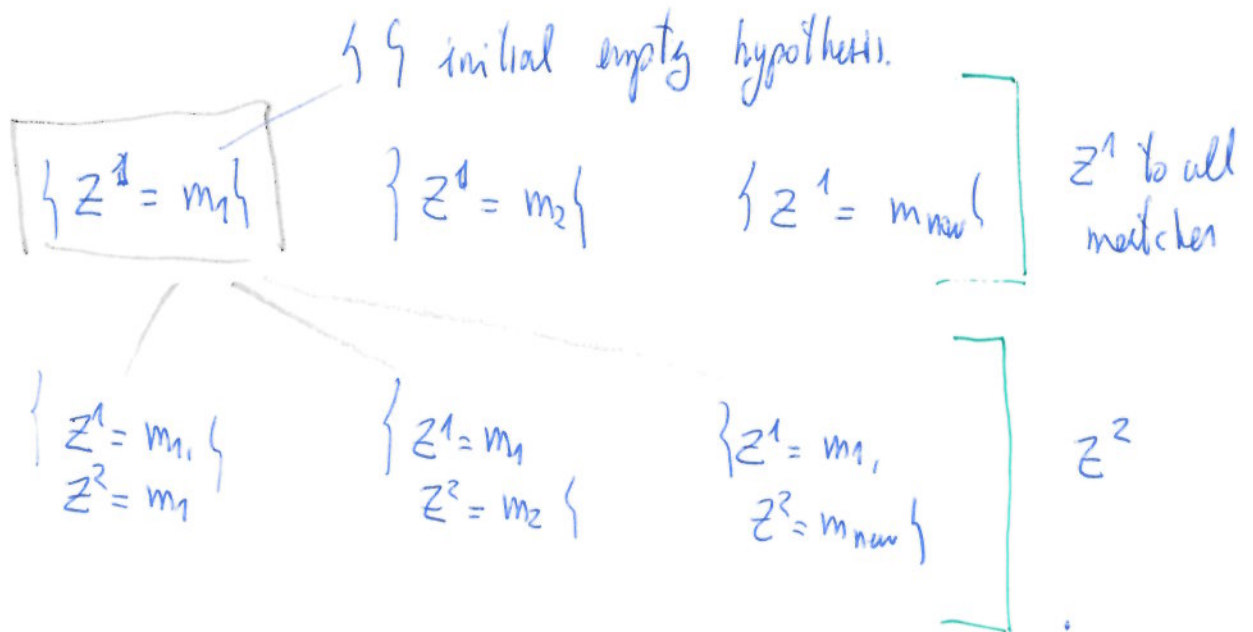 { } initial empty hypothesis.
{ z¹ = m₁ } { z¹ = m₂ } { z¹ = m_new } z¹ to all
matches
{ z¹ = m₁, } { z¹ = m₁ { z¹ = m₁, z²
z² = m₁ z² = m₂ } z² = m_new }